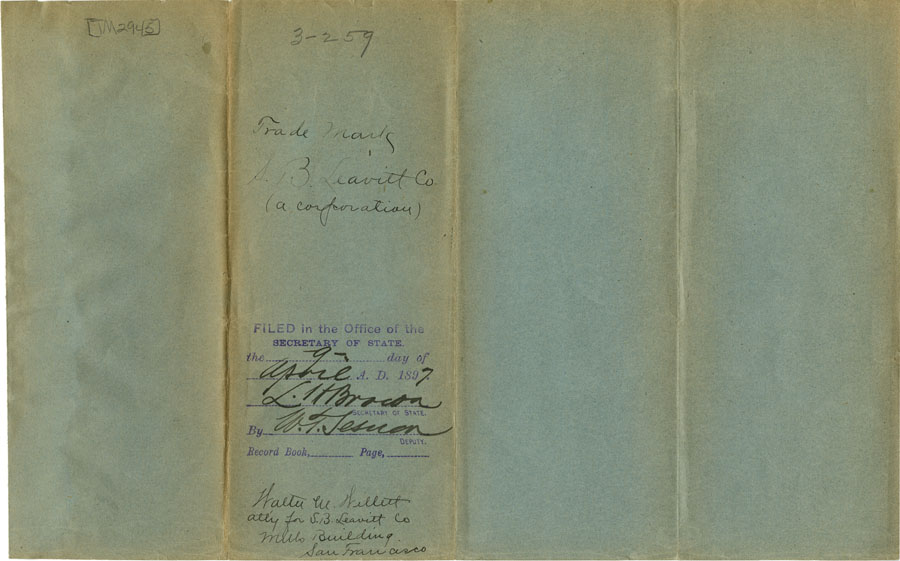 [TM2945]
3-259
Trade Mark
S. B. Leavitt Co
(a corporation)
FILED in the Office of the
SECRETARY OF STATE.
the 9- day of
April A. D. 1897
L. H. Brown
SECRETARY OF STATE.
By W. T. Sesnon
DEPUTY.
Record Book, Page,
Walter M. Willett
atty for S. B. Leavitt Co
Mills Building
San Francisco